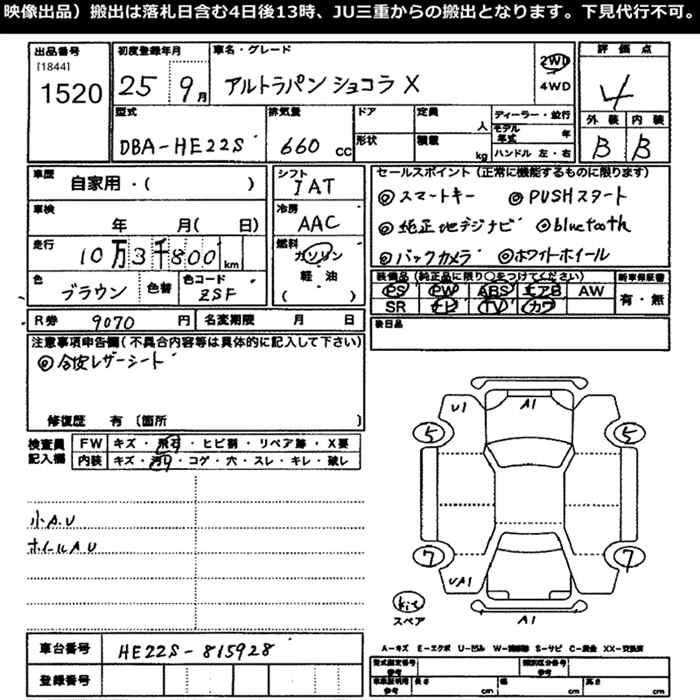 映像出品）搬出は落札日含む4日後13時、JU三重からの搬出となります。下見代行不可。
出品番号
[1844]
1520
初度登録年月
25 9月
車名・グレード
アルトラパン ショコラ X
2WD
4WD
評価点
4
外装 内装
B B
型式
DBA-HE22S
排気量
660 CC
ドア
形状
定員 人
積載 kg
ディーラー・並行
モデル年式 年
ハンドル 左・右
車歴
自家用・( )
車検
年 月( 日)
走行
10万3千800km
色
ブラウン
色替
色コード
ZSF
シフト
IAT
冷房
AAC
燃料
ガソリン
軽・油
( )
セールスポイント（正常に機能するものに限ります）
◎スマートキー ◎PUSHスタート
◎純正地デジナビ ◎bluetooth
◎バックカメラ ◎ホワイトホイール
装備品（純正品に限り○をつけてください）
PS PW ABS エアB AW
SR ナビ TV カワ
新車保証書
有・無
R券 9070 円
名変期限 月 日
後日品
注意事項申告欄(不具合内容等は具体的に記入して下さい)
◎合皮レザーシート
修復歴 有 (箇所 )
検査員記入欄
FW キズ・飛石・ヒビ割・リペア跡・X要
内装 キズ・汚れ・コゲ・穴・スレ・キレ・破レ
小A.U
ホイールA.U
U1
A1
5
5
7
7
UA1
A1
kit
スペア
車台番号
HE22S-815928
登録番号
A-キズ E-エクボ U-凹み W-補修跡 S-サビ C-腐食 XX-交換済
型式指定番号
参考
類別区分番号
参考
車庫証明用
参考
長さ cm
幅 cm
高さ cm